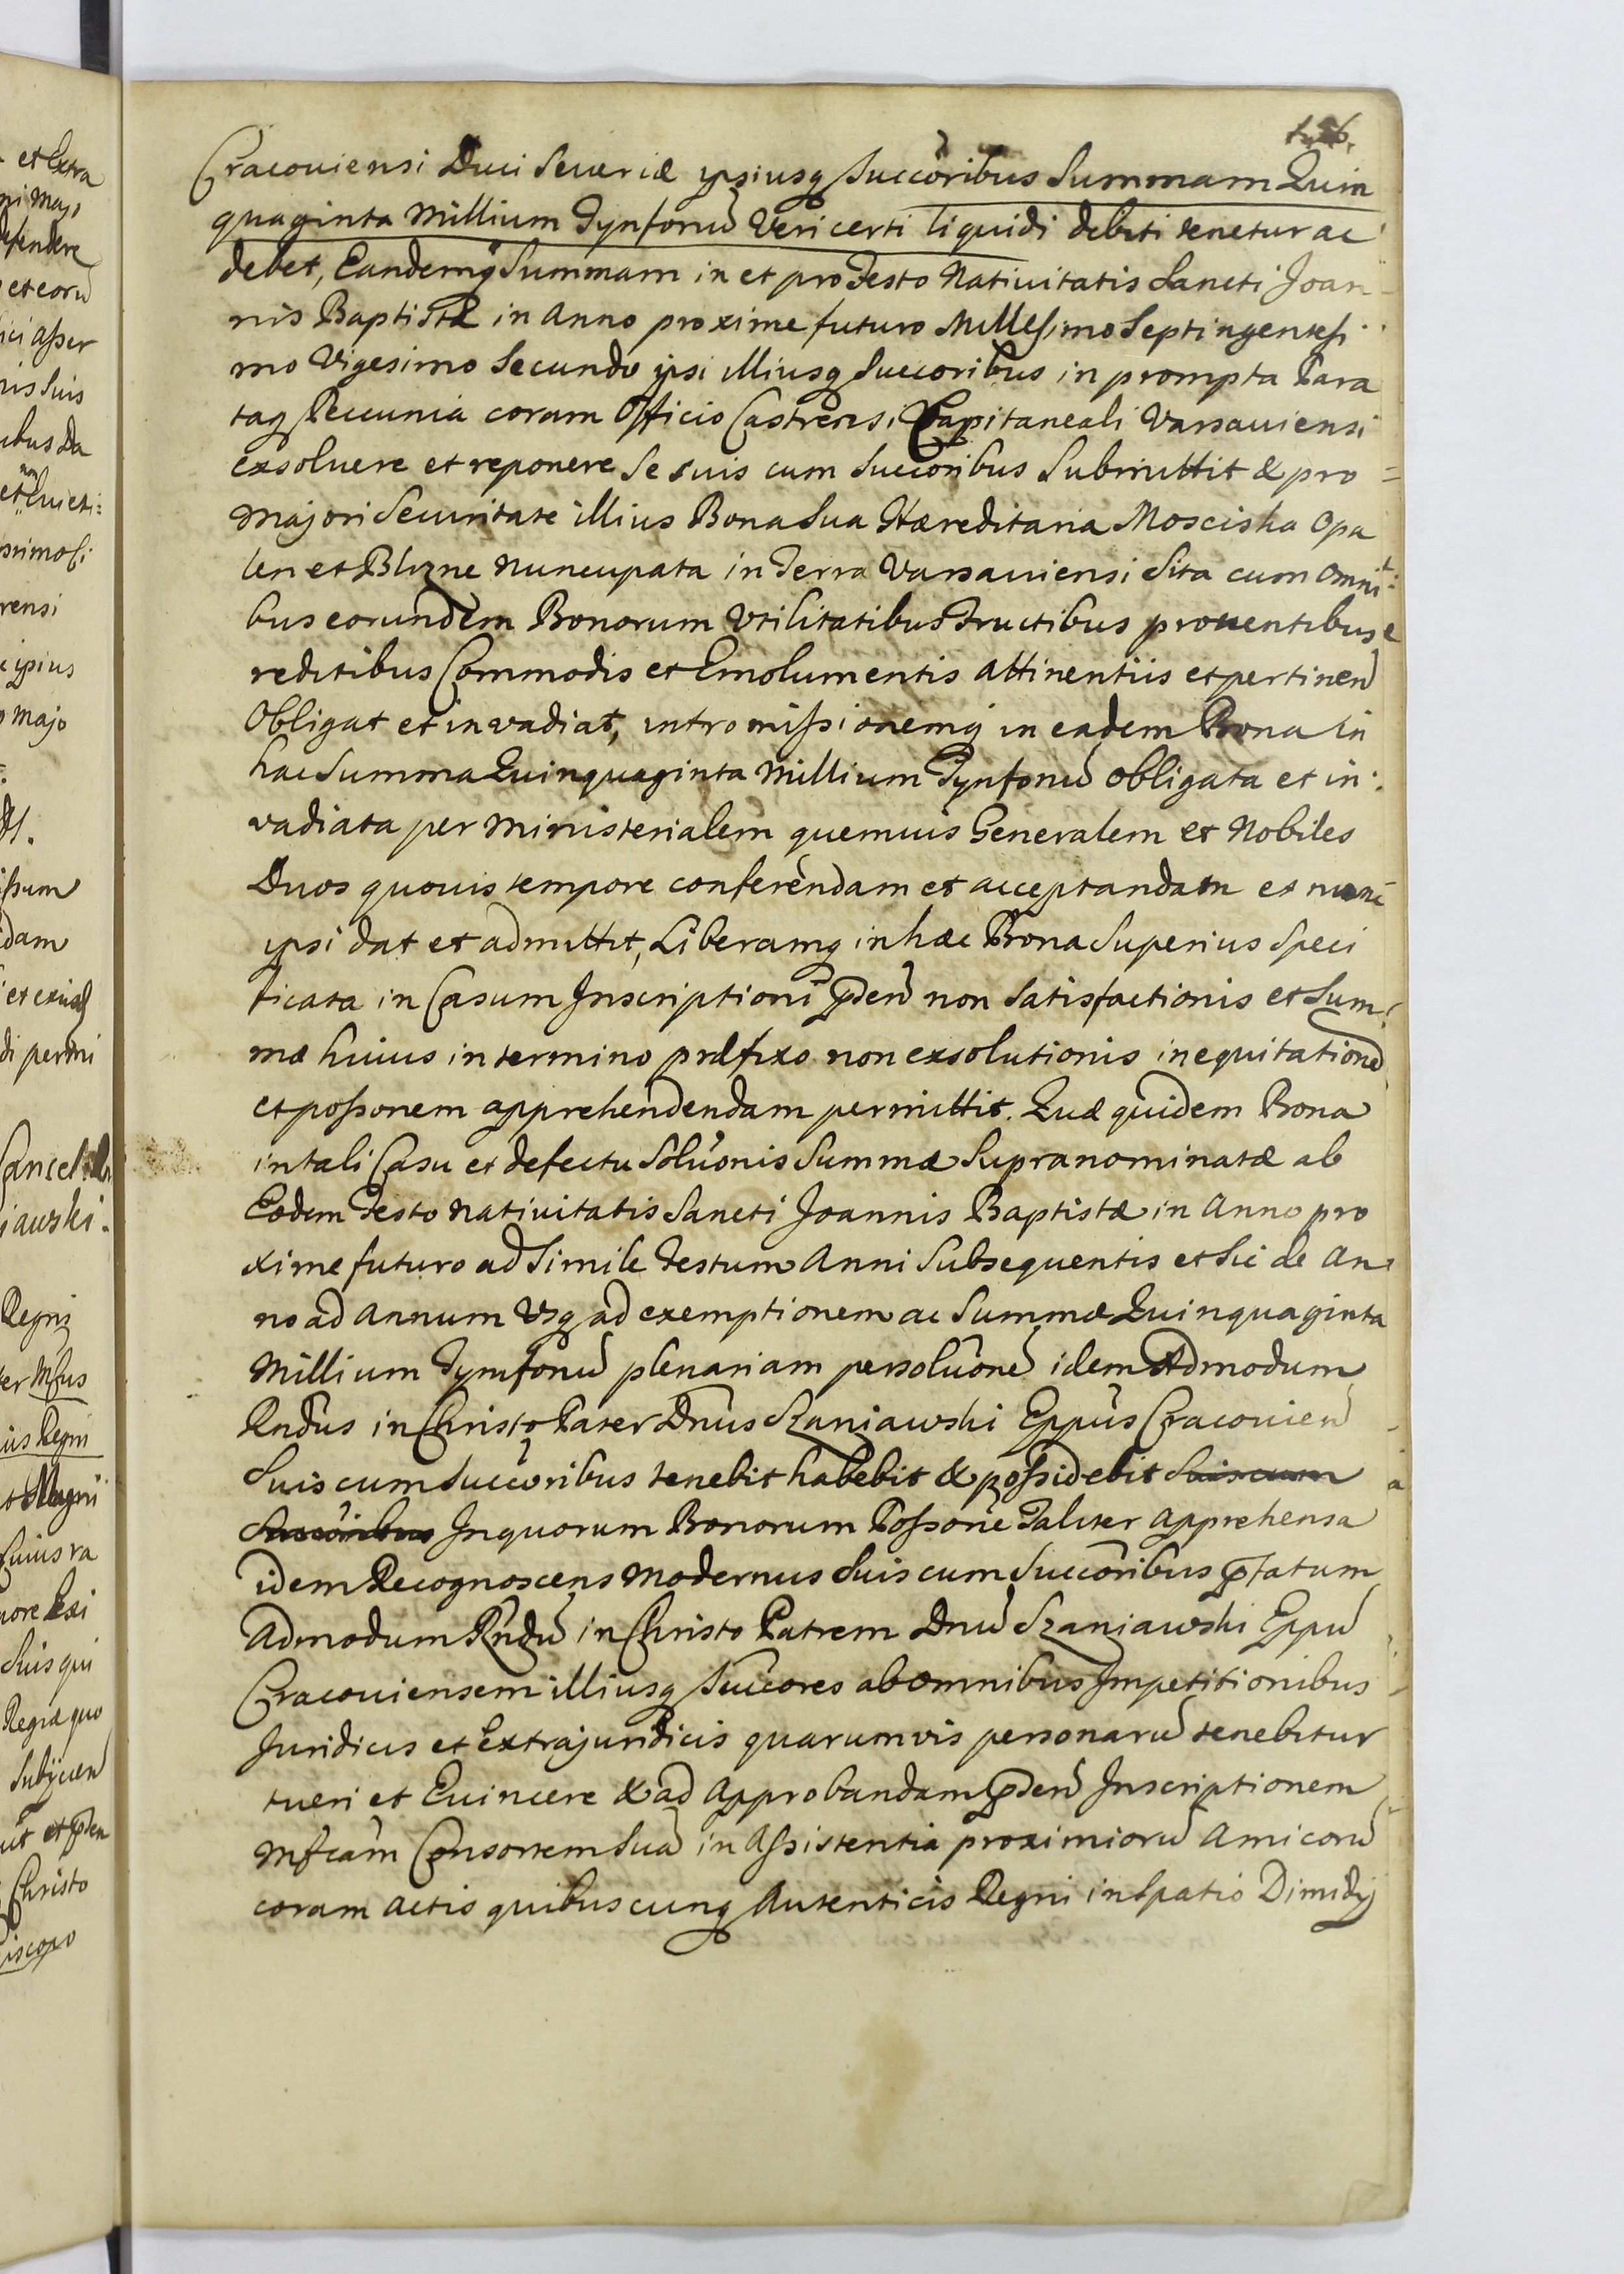 Cracouiensi Duci Seueriæ ypsiusq Succoribus Summam Quin
quaginta Millium Tynforũ Veri certi liquidi debiti tenetur ac
debet, Eandemq Summam in et pro Festo Natiuitatis Sancti Joan
nis Baptistæ in Anno proxime futuro Millesimo Septingentesi
mo Vigesimo Secundo ypsi illiusq Succoribus in prompta Para
taq Pecunia coram Officio Castrensi Capitaneali Varsauiensi
exsoluere et reponere Se suis cum Succoribus Submittit & pro =
majori Securitate illius Bona Sua Hæreditaria Mosciska Opa
len et Blizne nuncupata in Terra Varsauiensi Sita cum Omni
bus eorundem Bonorum Vtilitatibus Fructibus prouentibus
reditibus Commodis et Emolumentis attinentiis et pertinen
Obligat et invadiat, intromissionemq in eadem Bona in
hac Summa Quinquaginta Millium Tynforũ obligata et in:
vadiata per Ministerialem quemuis Generalem et Nobiles
Duos quouis tempore conferendam et acceptandam et
ypsi dat et admittit, Liberamq in hæc Bona Superius Speci
ficata in Casum Inscriptioni pñden non Satisfactionis et Sum
mæ huius in termino præfixo non exsolutionis inequitationẽ
et possonem apprehendendam permittit. Quæ quidem Bona
in tali Casu et defectu Solũonis Summæ Supranominatæ ab
Eodem Festo Natiuitatis Sancti Joannis Baptistæ in Anno pro
xime futuro ad Simile Festum Anni Subsequentis et Sic de An
no ad Annum Vsq ad exemptionem ac Summæ Quinquaginta
Millium Tymforũ plenariam persolũonẽ idem Admodum
Rndus in Christo Pater Dnus Szaniawski Eppus Cracouien
Suis cum Succoribus tenebit habebit & possidebit Suis cum
Succoribus In quorum Bonorum Possone Taliter apprehensa
idem Recognoscens Modernus Suis cum Succoribus pstatum
Admodum Rndũ in Christo Patrem Dnũ Szaniawski Eppũ
Cracouiensem illiusq Succores ab omnibus Impetitionibus
Juridicis et Extrajuridicis quarumvis personarũ tenebitur
tueri et Euincere & ad Approbandam pñden Inscriptionem
Mfcam Consortem Suã in Assistentia proximiorũ Amicorũ
coram Actis quibuscunq Autenticis Regni in Spatio Dimidij